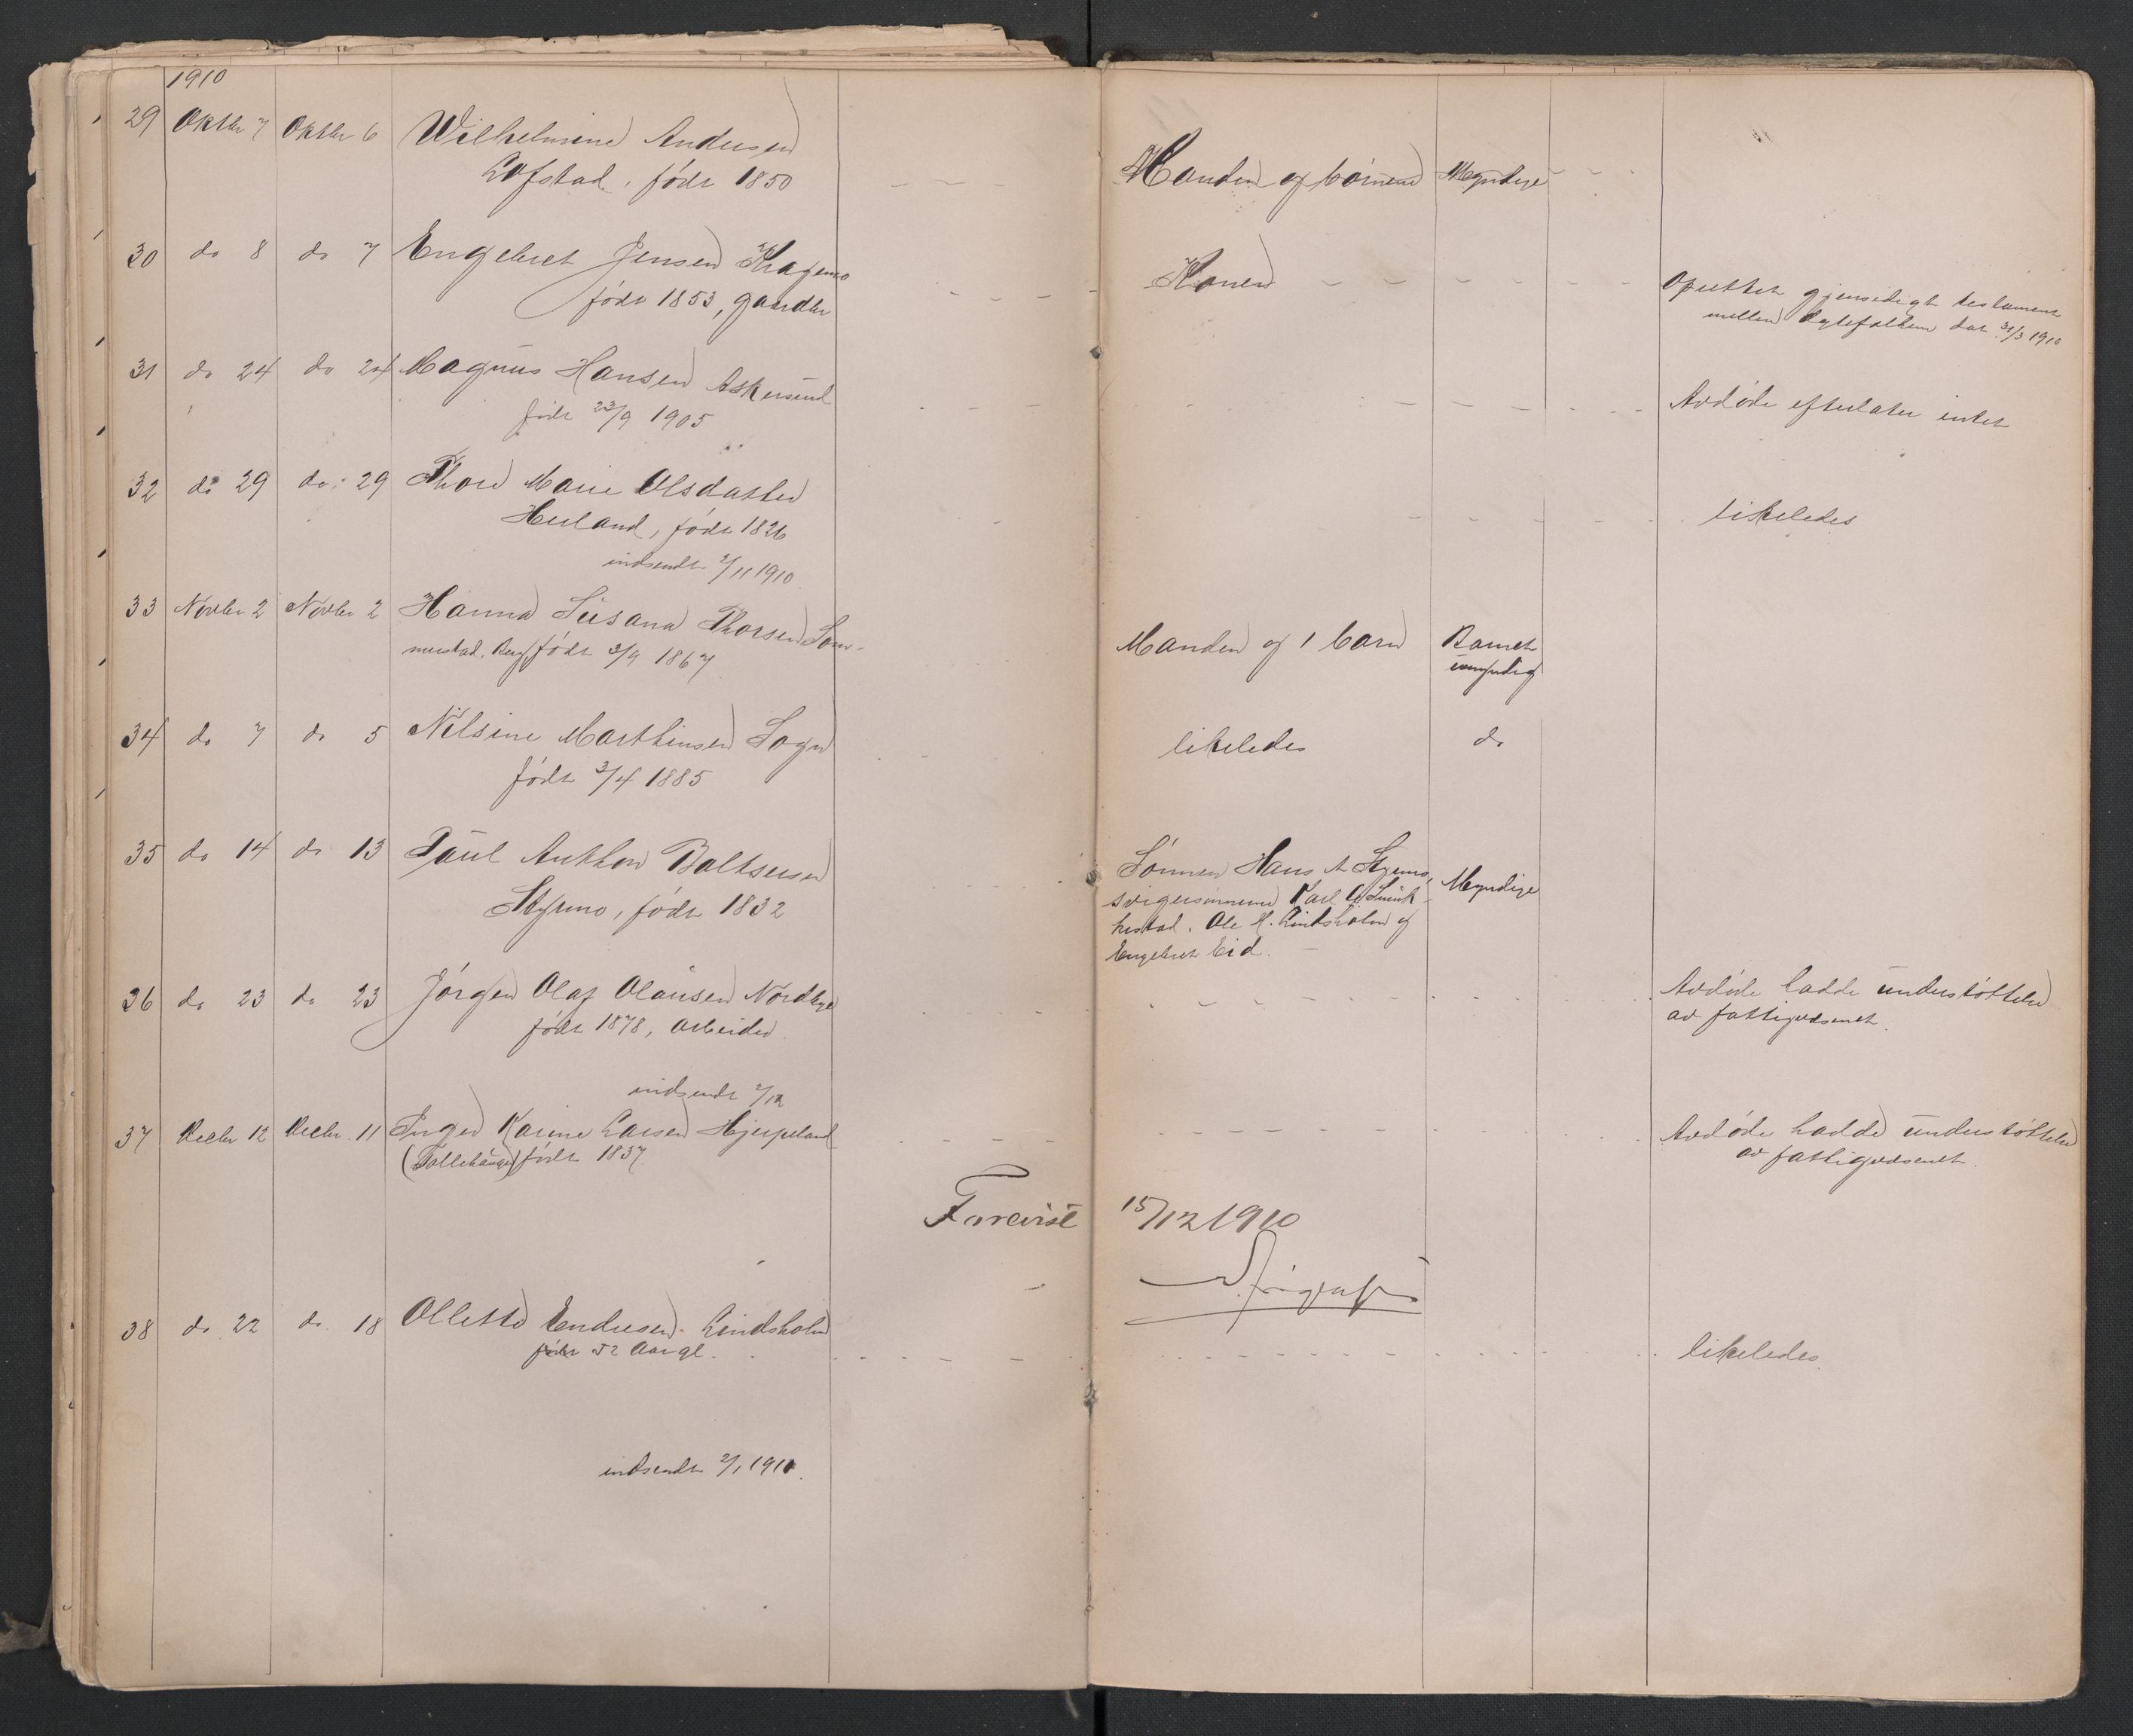 1910
29 Oktbr 7 Oktbr 6 Wilhelmine Andersen
Lofstad, født 1850 Manden og børnene Myndige
30 do 8 do 7 Engebret Jensen Kragemo Konen
født 1853, gaardbr Oprettet gjensidigt testament
mellem egtefolkene dat 31/3 1910
31 do 24 do 24 Magnus Hansen Askersund
født 23/9 1905 Avdøde efterlater intet
32 do 29 do 29 Thore Marie Olsdatter
Herland, født 1826 likeledes
indsendt 2/11 1910
33 Novbr 2 Novbr 2 Hanna Susana Thorsen Som-
merstad, Berg, født 3/9 1867 Manden og 1 barn Barnet
umyndig
34 do 7 do 5 Nilsine Marthinsen Sogn likeledes do
født 3/4 1885
35 do 14 do 13 Paul Anthon Baltsersen
Stymo, født 1832
Sønnen Hans A Stymo, Myndige
svigersønnene Karl
Ole H. Lindsholm og
Engebret Eid.
36 do 23 do 23 Jørgen Olaf Olausen Nordbye
født 1878, arbeider
Avdøde hadde understøttelse
av fattigvæsenet.
indsendt 2/12
37 Decbr 12 Decbr. 11 Inger Karine Larsen Hjerpeland
født 1837
Avdøde hadde understøttelse
av fattigvæsenet.
Forevist 15/12 1910
38 do 22 do 18 Olette Endresen Lindsholm
født 52 Aar gl. likeledes
indsendt 2/1 1911.